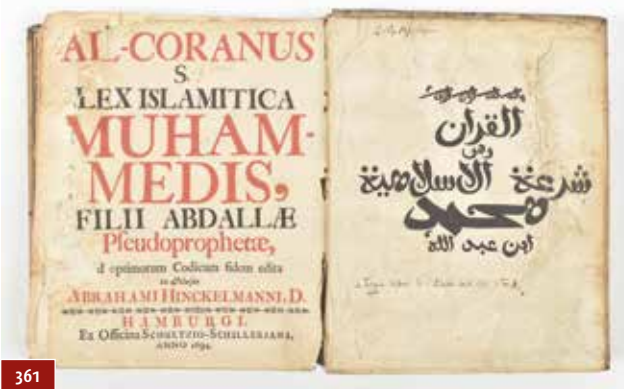 AL-CORANUS
S.
LEX ISLAMITICA
MUHAM-
MEDIS,
FILII ABDALLÆ
Pseudoprophetæ,
d optimorum Codicum fidem edita
ex
ABRAHAMI HINCKELMANNI, D.
HAMBURGI,
Ex Officina SCHULTZIO-SCHILLERIANA,
ANNO 1694.
القران
وهي
شرعة الاسلامية
محمد
ابن عبد الله
361